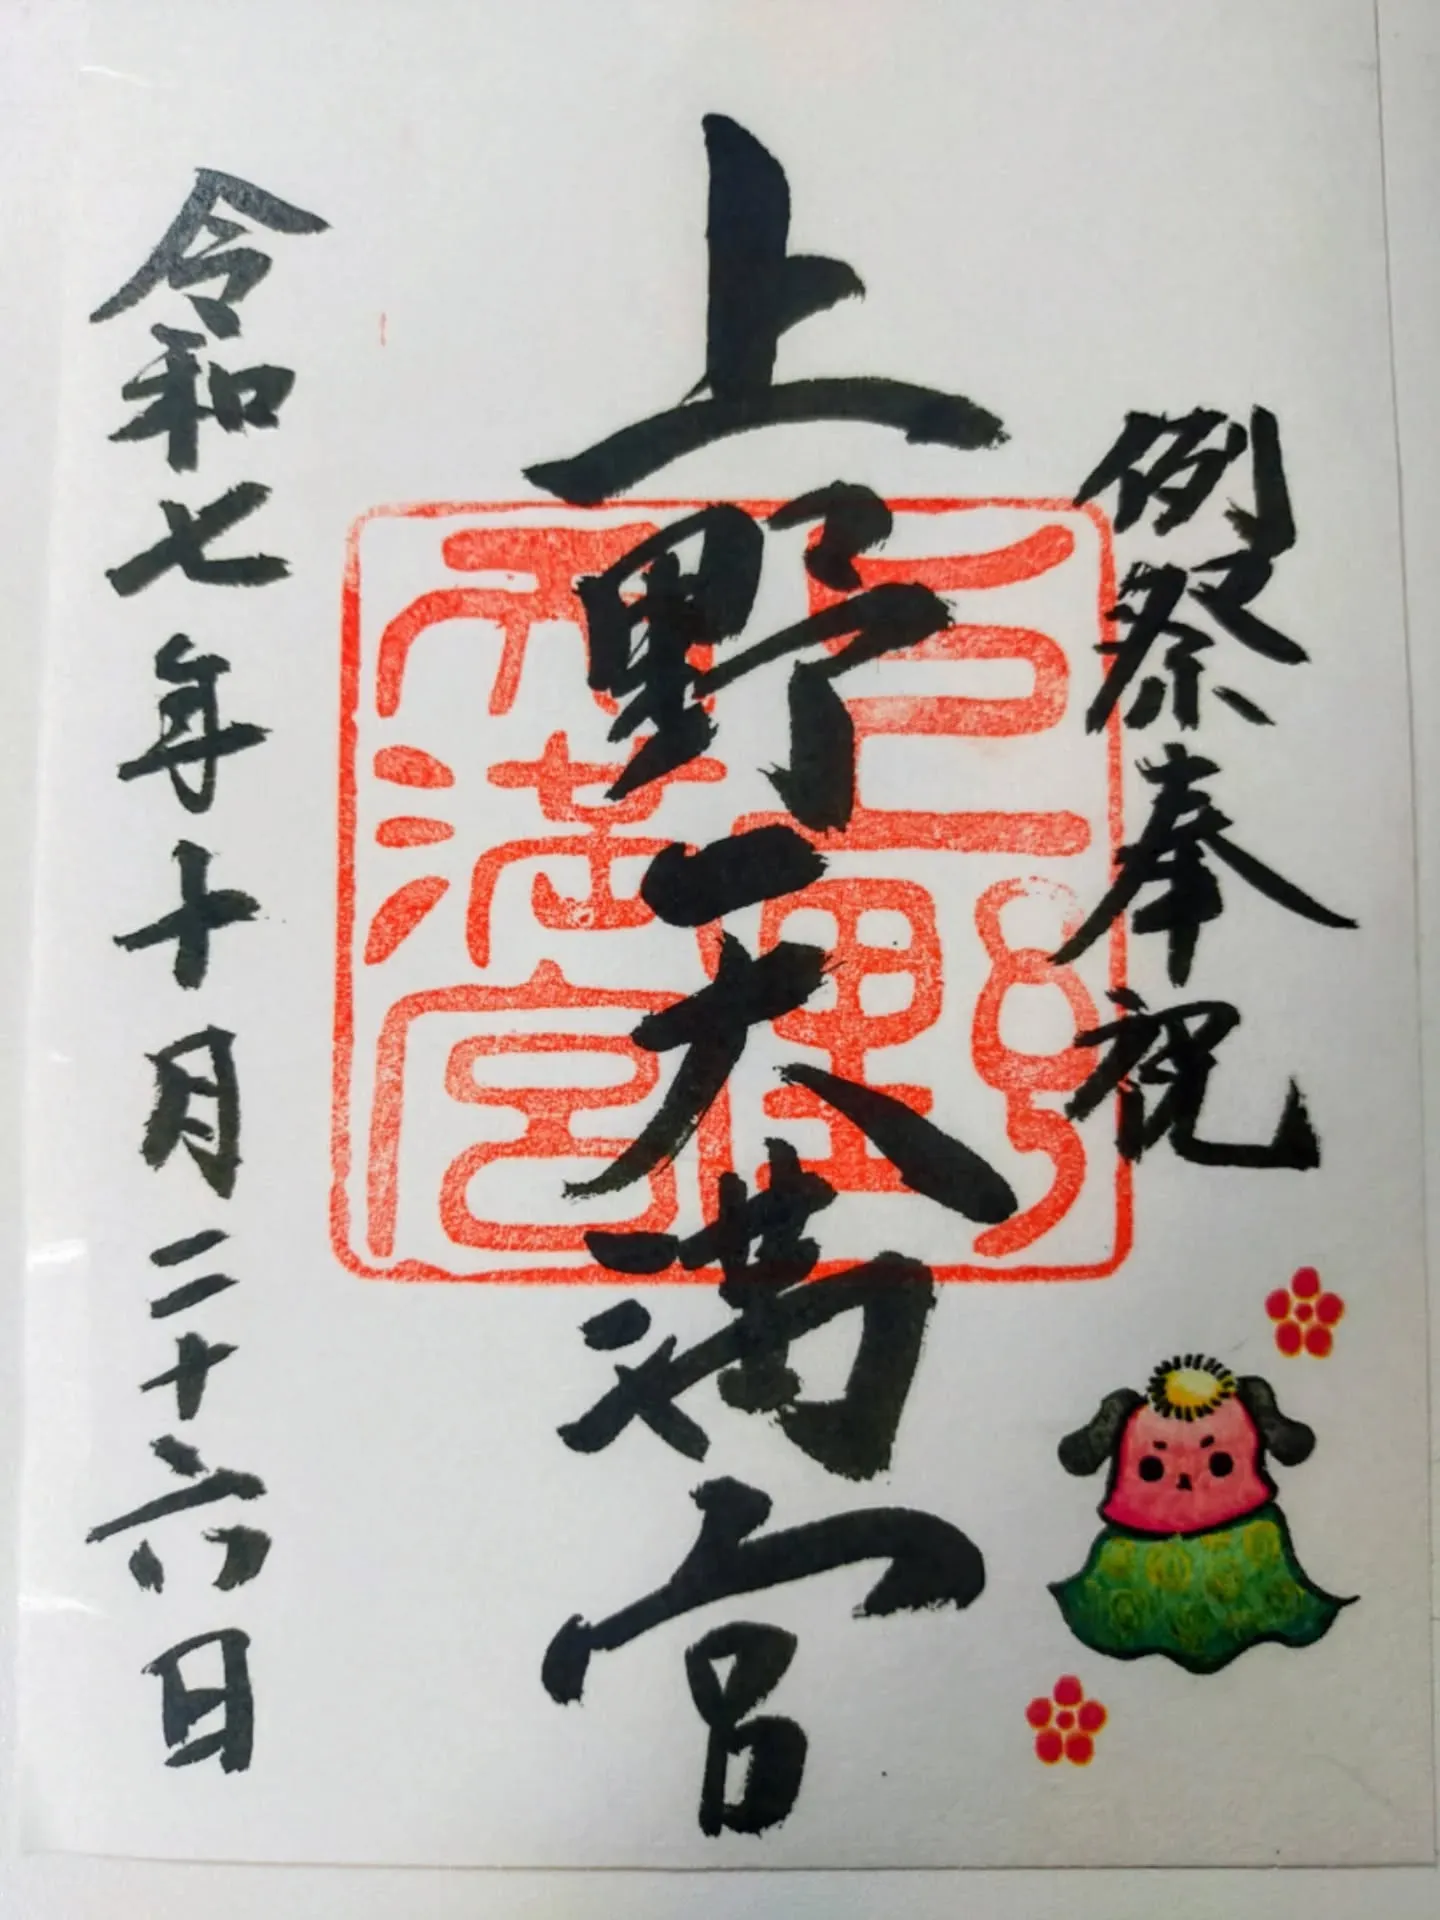 例祭奉祝
上野天満宮
上野
天満宮
令和七年十月二十六日